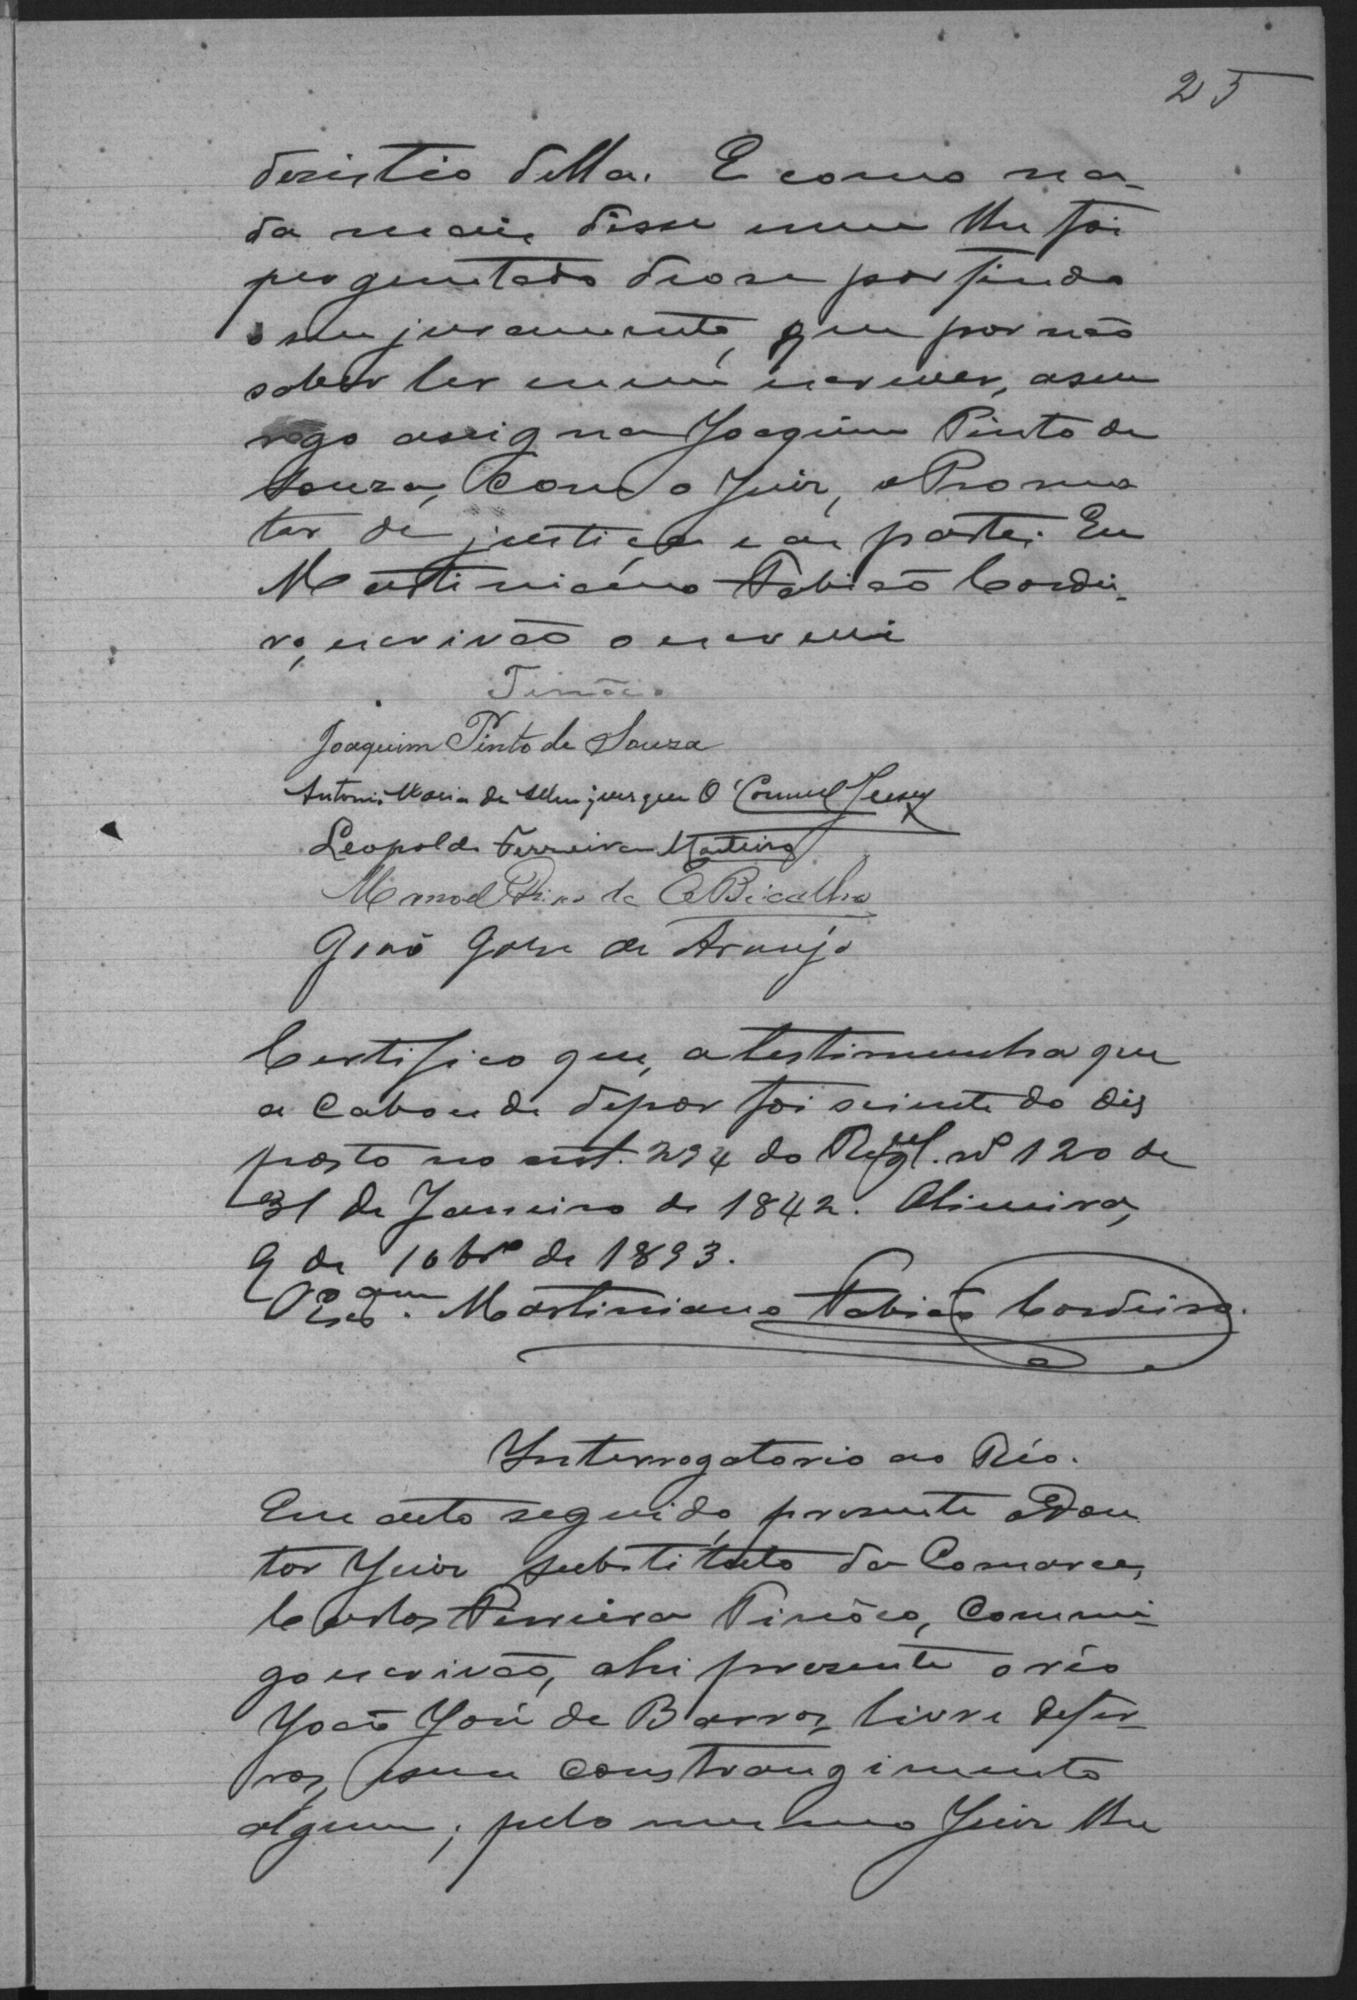 25
desistio della. E como na-
da mais disse nem lhe foi
perguntado deose por findo
o seu juramento, que por não
saber ler nem escrever, a seu
rogo assigna Joaquim Pinto de
Souza, com o Juiz, o Promo
tor de justiça e as partes. Eu
Martiniano Fabião Cordei-
ro, escrivão o escrevi
Tinôco
Joaquim Pinto de Souza
Antonio Maria de O'Connel Jersey
Leopoldo Ferreira Monteiro
Manoel Dias de Sá Bicalho
João Gomes de Araujo
Certifico que, a testimunha que
acabou de depor foi sciente do dis
posto no art. 294 do Regul. nº 120 de
31 de Janeiro de 1842. Limeira,
9 de 10brº de 1893.
O escram. Martiniano Fabião Cordeiro.
Interrogatorio ao Réo.
Em acto seguido, presente o Dou
tor Juiz substituto da Comarca,
Carlos Ferreira Tinôco, commi-
go escrivão, ahi presente o réo
João José de Barros, livre de fer-
ros, e sem constrangimento
algum; pelo mesmo Juiz lhe